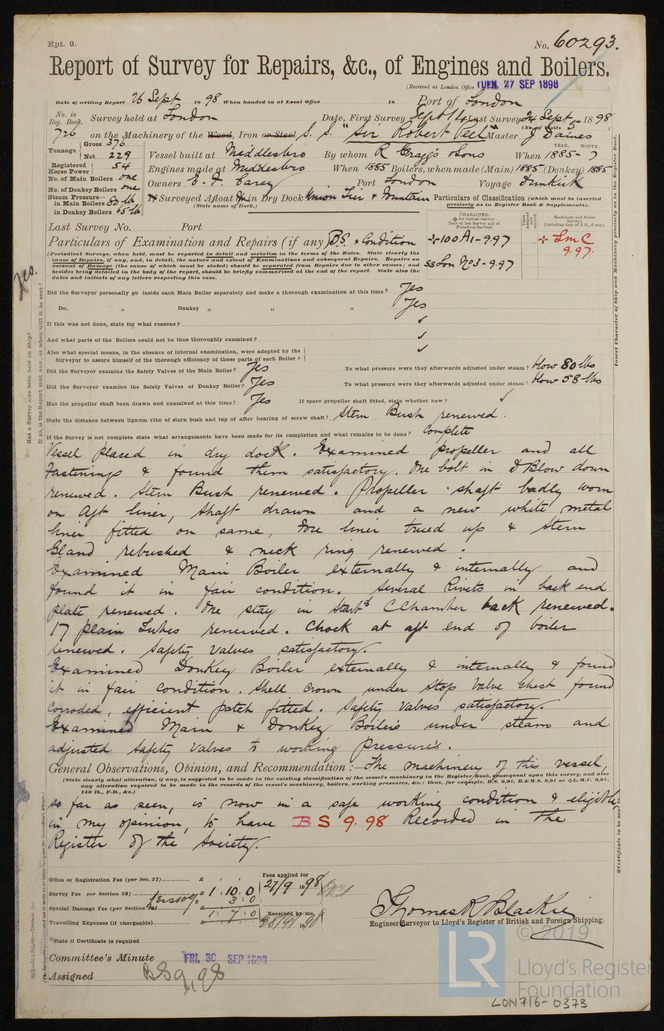 Rpt. 9.
No. 60293.
Report of Survey for Repairs, &c., of Engines and Boilers.
(Received at London Office TUES. 27 SEP 1898
Date of writing Report 26 Sept 1898 When handed in at Local Office 18 Port of London
No. in Reg. Book. Survey held at London Date, First Survey Sept 14 Last Survey 24 Sept 1898
726 on the Machinery of the Wood, Iron or Steel S. S. "Sir Robert Peel" Master J Daines
Tonnage Gross 376 Net 229 Vessel built at Middlesbro By whom R Craggs & Sons When 1885-7
Registered Horse Power 54 Engines made at Middlesbro When 1885 Boilers, when made (Main) 1885 (Donkey) 1885
No. of Main Boilers one Owners E. T. Carey Port London Voyage Dunkirk
No. of Donkey Boilers one
Steam Pressure in Main Boilers 80 lb Surveyed Afloat or in Dry Dock Union Tier & Fountain
in Donkey Boilers 45 lb (State name of Dock.)
Particulars of Classification (which must be inserted precisely as in Register Book & Supplements).
Last Survey No. Port
Particulars of Examination and Repairs (if any) BS & Condition
+100A1-9.97
SS Lon No 3-9.97
+ LMC 9.97.
Did the Surveyor personally go inside each Main Boiler separately and make a thorough examination at this time? Yes
Do. " Donkey " " " " Yes
If this was not done, state for what reasons? ✓
And what parts of the Boilers could not be thus thoroughly examined? ✓
Also what special means, in the absence of internal examination, were adopted by the Surveyor to assure himself of the thorough efficiency of those parts of each Boiler? ✓
Did the Surveyor examine the Safety Valves of the Main Boiler? Yes To what pressure were they afterwards adjusted under steam? blow 80 lbs
Did the Surveyor examine the Safety Valves of Donkey Boiler? Yes To what pressure were they afterwards adjusted under steam? blow 58 lbs
Has the propeller shaft been drawn and examined at this time? Yes If spare propeller shaft fitted, state whether new? ✓
State the distance between lignum vitæ of stern bush and top of after bearing of screw shaft? Stern Bush renewed.
If the Survey is not complete state what arrangements have been made for its completion and what remains to be done? Complete
Vessel placed in dry dock. Examined propeller and all
fastenings & found them satisfactory. One bolt in D Blow down
renewed. Stern Bush renewed. Propeller shaft badly worn
on Aft liner, shaft drawn and a new white metal
liner fitted on same, Fore liner trued up & Stern
Gland rebushed & neck ring renewed.
Examined Main Boiler externally & internally and
found it in fair condition. Several Rivets in back end
plate renewed. One stay in Starbd C Chamber back renewed.
17 plain Tubes renewed. Chock at aft end of boiler
renewed. Safety Valves satisfactory.
Examined Donkey Boiler externally & internally & found
it in fair condition. Shell Crown under Stop Valve chest found
corroded, efficient patch fitted. Safety Valves satisfactory.
Examined Main & Donkey Boilers under steam and
adjusted Safety Valves to working pressures.
General Observations, Opinion, and Recommendation:—The machinery of this vessel,
so far as seen, is now in a safe working condition & eligible,
in my opinion, to have BS 9.98 Recorded in the
Register of the Society.
Office or Registration Fee (per Sec. 27) £ : : Fees applied for
Survey Fee (per Section 28) £ 1:10:0 27/9 1898
less 10% 3:0
Special Damage Fee (per Section 28) £ 1:7:0 Received by me,
Travelling Expenses (if chargeable) £ : :
Thomas R Blackie
Engineer Surveyor to Lloyd's Register of British and Foreign Shipping.
State if Certificate is required
Committee's Minute FRI. 30 SEP 1898
Assigned BS 9,98
© 2019
LR
Lloyd's Register
Foundation
LON716-0373